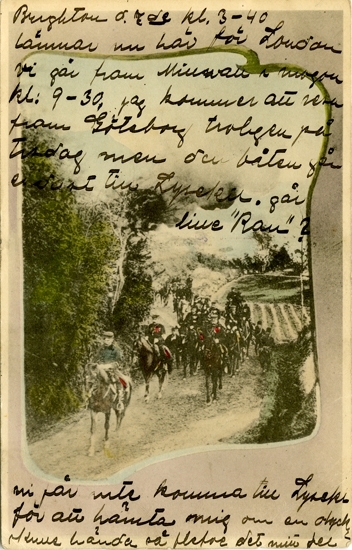 Brighton d. 7de kl. 3-40
lämnar nu här för London
vi går fram Minuatt i morgon
kl: 9-30, jag kommer att resa
från Göteborg troligen på
tisdag men den båten går
endast till Lysekil. går
live "Ran"?
ni får inte komma till Lysekil
för att hämta mig om en olycka
skulle hända så